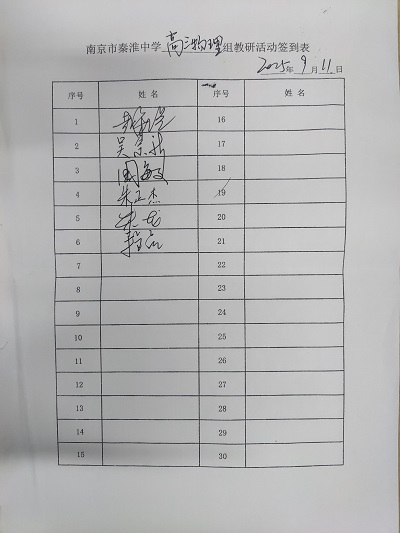 南京市秦淮中学高三物理组教研活动签到表
2025年9月11日
序号 姓名 序号 姓名
1 16
2 吴 17
3 周敏 18
4 朱正杰 19
5 朱 20
6 21
7 22
8 23
9 24
10 25
11 26
12 27
13 28
14 29
15 30